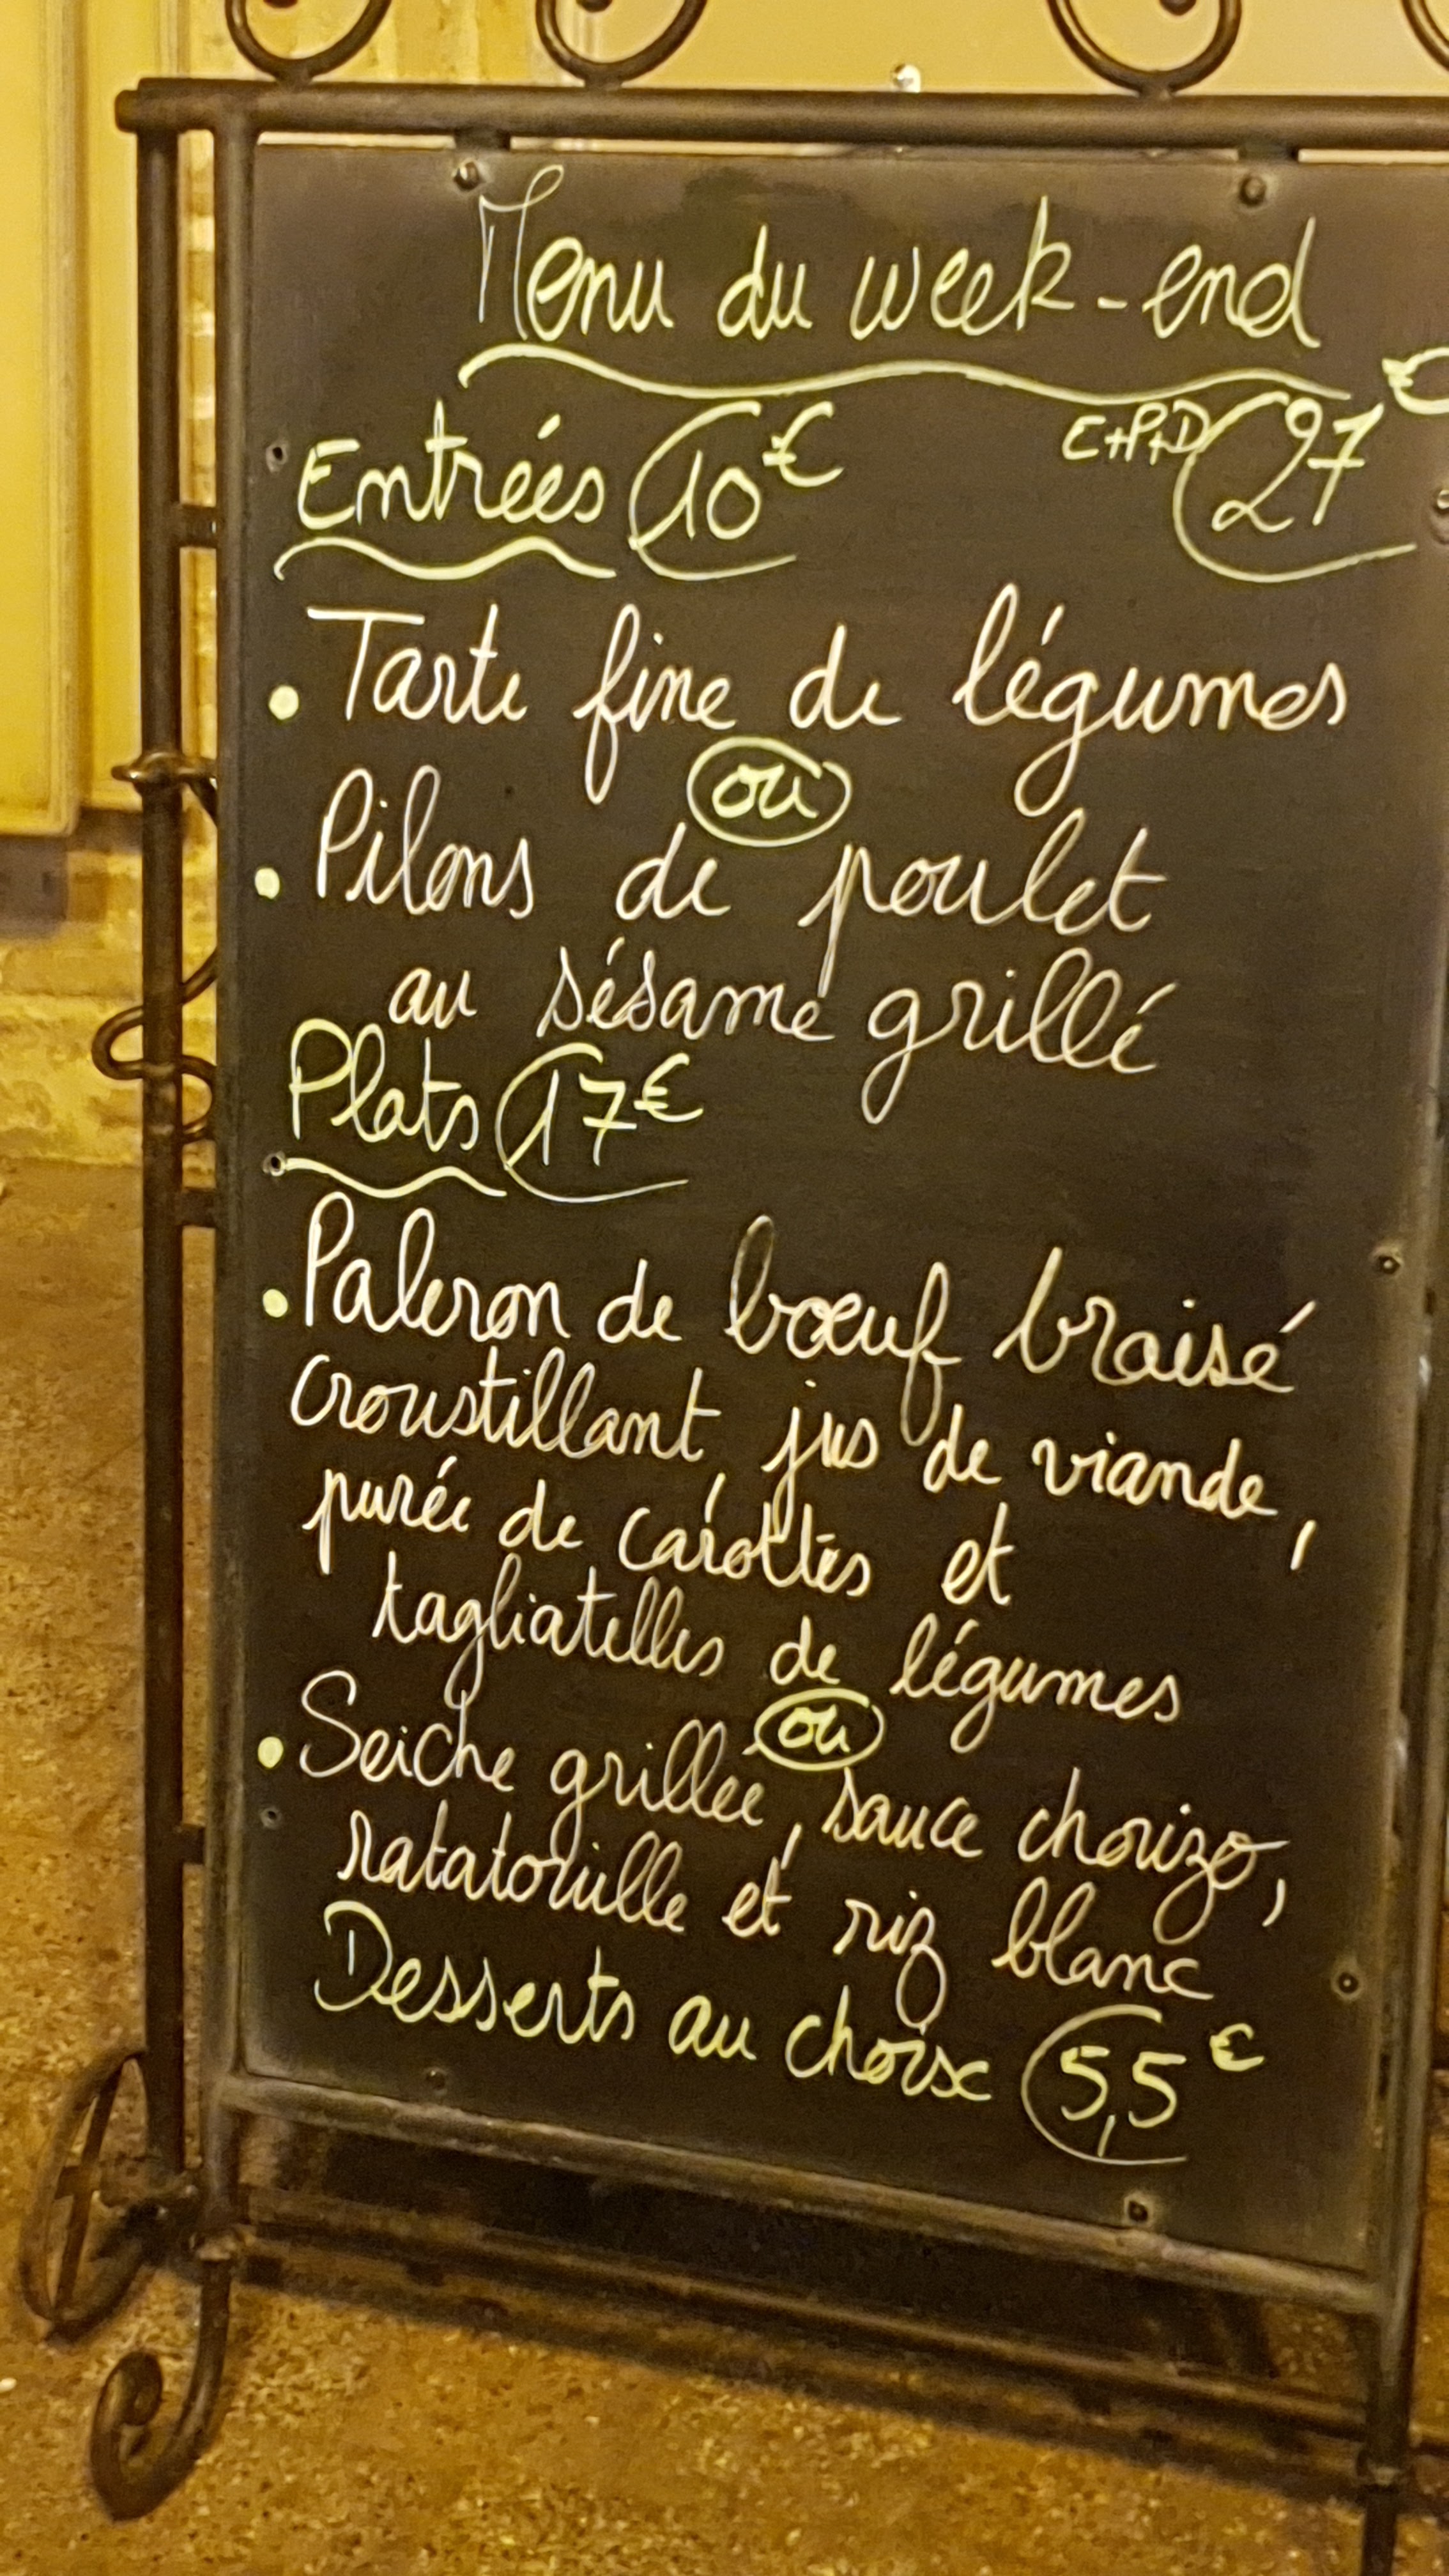 Menu du week-end
Entrées 10€ E+P+D 27€
• Tarte fine de légumes
ou
• Pilons de poulet
au sésame grillé
Plats 17€
• Paleron de bœuf braisé
croustillant, jus de viande,
purée de carottes et
tagliatelles de légumes
ou
• Seiche grillée, sauce chorizo,
ratatouille et riz blanc
Desserts au choix 5,5€